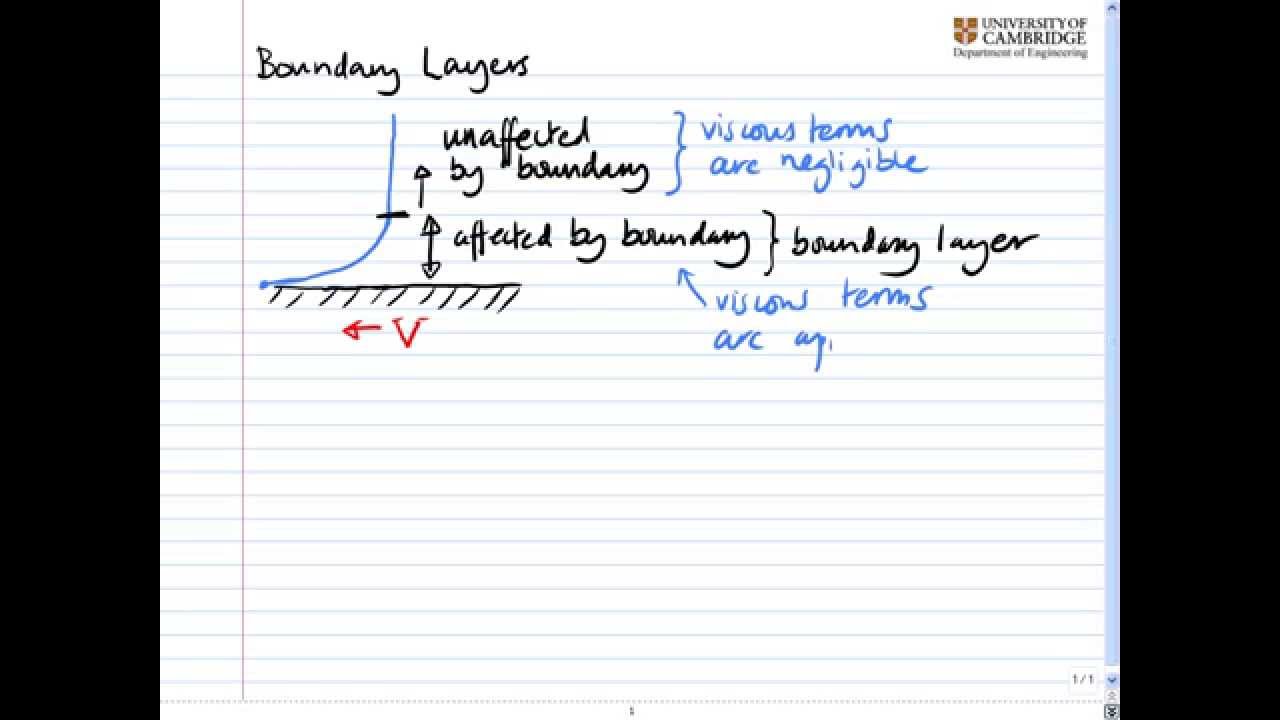 UNIVERSITY OF
CAMBRIDGE
Department of Engineering
Boundary Layers
unaffected
by boundary
viscous terms
are negligible
affected by boundary
boundary layer
viscous terms
are ap
V
1/1
1